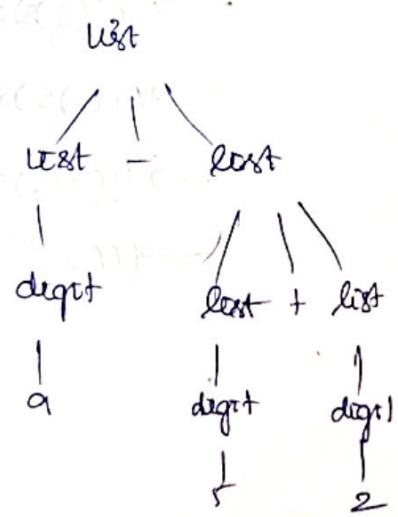 list
list - list
digit list + list
9 digit digit
5 2